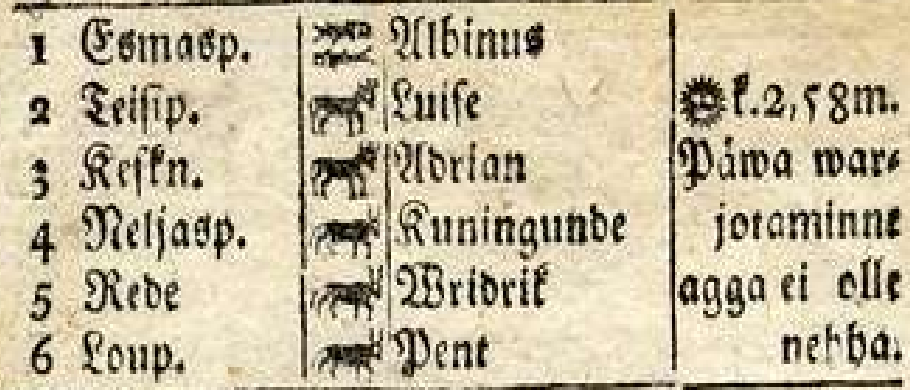 1 Esmasp. Albinus
2 Teisip. Luise k.2,58m.
3 Keskn. Adrian Päwa war⸗
4 Neljasp. Kuningunde jotaminne
5 Rede Wridrik agga ei olle
6 Loup. Pent nehha.